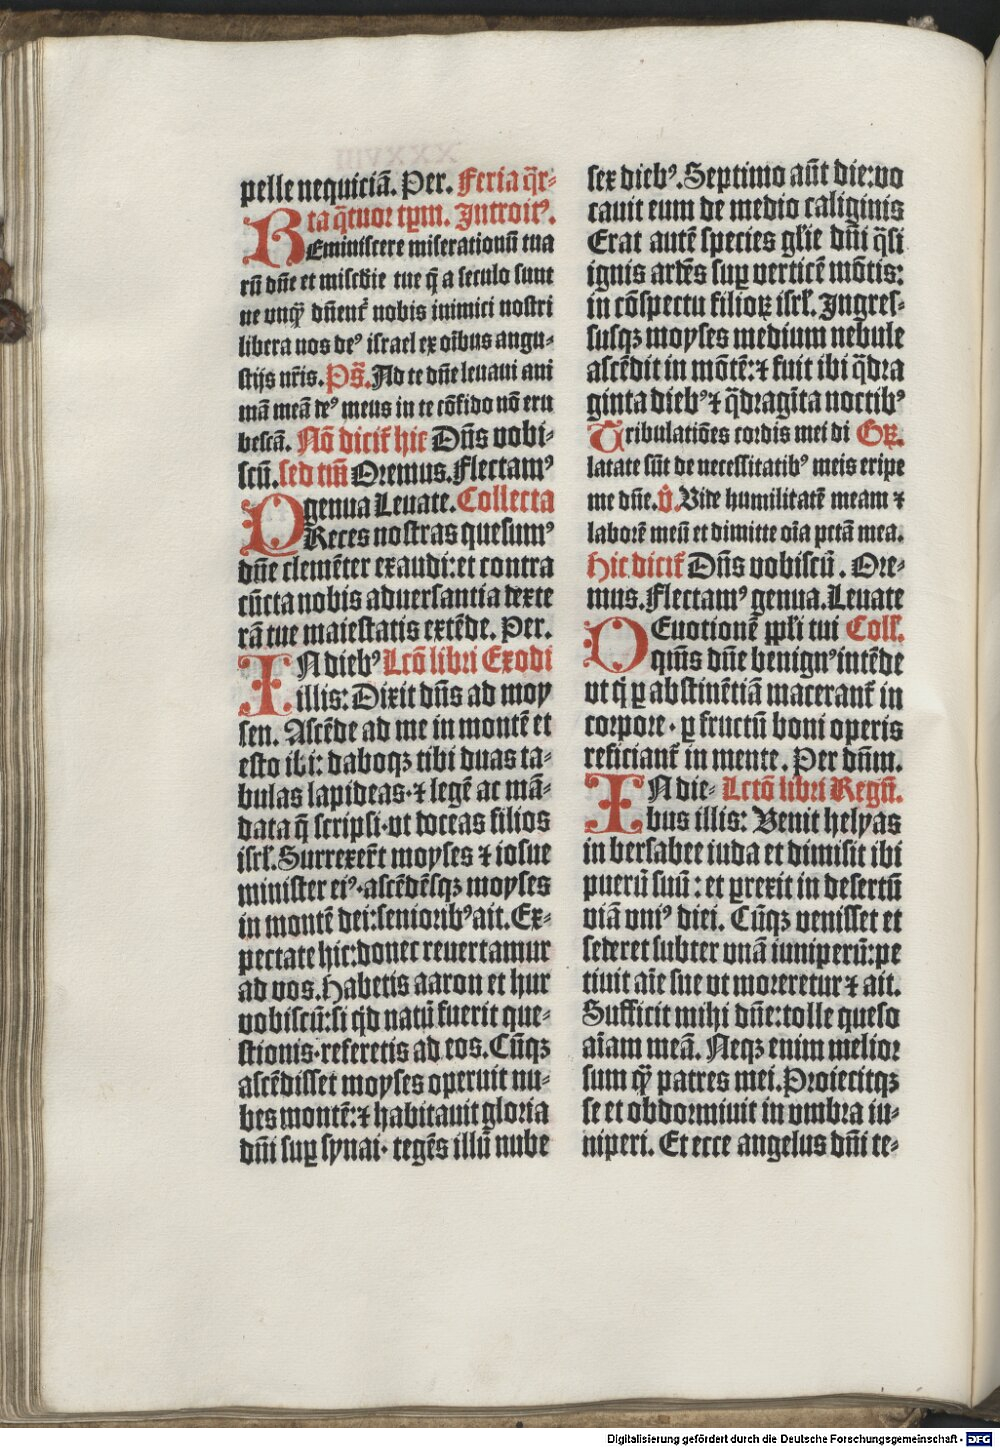 pelle nequiciā. Per. Feria q̄r-
ta q̄tuor tp̄m. Introitꝰ.
REminiscere miserationū tua
rū dn̄e et misc̄die tue q̄ a seculo sunt
ne vnq̄ȝ dn̄ent᷑ nobis inimici nostri
libera nos deꝰ israel ex oībus angu-
stijs nr̄is. Ps̄. Ad te dn̄e leuaui ani
mā meā deꝰ meus in te cōfido nō eru
bescā. Nō dicit᷑ hic Dn̄s vobi-
scū. sed tm̄ Oremus. Flectamꝰ
genua Leuate. Collecta
PReces nostras quesumꝰ
dn̄e clemēter exaudi: et contra
cūcta nobis aduersantia dexte
rā tue maiestatis extēde. Per.
IN diebꝰ Lc̄o libri Exodi
illis: Dixit dn̄s ad moy
sen. Ascēde ad me in montē et
esto ibi: daboqȝ tibi duas ta-
bulas lapideas· ⁊ legē ac mā-
data q̄ scripsi· vt doceas filios
isrl̄. Surrexer̄t moyses ⁊ iosue
minister eiꝰ· ascēdēsqȝ moyses
in montē dei: senioribꝰ ait. Ex-
pectate hic: donec reuertamur
ad vos. Habetis aaron et hur
vobiscū: si qd̄ natū fuerit que-
stionis· referetis ad eos. Cūqȝ
ascēdisset moyses operuit nu-
bes montē: ⁊ habitauit gloria
dn̄i suꝑ synai· tegēs illū nube
sex diebꝰ. Septimo aūt die: vo
cauit eum de medio caliginis
Erat autē species glīe dn̄i q̄si
ignis ardēs suꝑ verticē mōtis:
in cōspectu filioꝝ isrl̄. Ingres-
susqȝ moyses medium nebule
ascēdit in mōtē: ⁊ fuit ibi q̄dra
ginta diebꝰ ⁊ q̄dragīta noctibꝰ
Tribulatiōes cordis mei di Gꝝ.
latate sūt de necessitatibꝰ meis eripe
me dn̄e. V̊. Vide humilitatē meam ⁊
laborē meū et dimitte oīa pctā mea.
Hic dicit᷑ Dn̄s vobiscū. Ore-
mus. Flectamꝰ genua. Leuate
DEuotionē pp̄li tui Coll̄.
qm̄s dn̄e benignꝰ intēde
vt q̄ ꝑ abstinētiā macerant᷑ in
corpore· ꝑ fructū boni operis
reficiant᷑ in mente. Per dn̄m.
IN die- Lctō libri Regū.
bus illis: Venit helyas
in bersabee iuda et dimisit ibi
puerū suū: et ꝑrexit in desertū
viā vniꝰ diei. Cūqȝ venisset et
sederet subter vnā iuniperū: pe
tiuit aīe sue vt moreretur ⁊ ait.
Sufficit mihi dn̄e: tolle queso
aīam meā. Neqȝ enim melior
sum q̄ȝ patres mei. Proiecitqȝ
se et obdormiuit in vmbra iu-
niperi. Et ecce angelus dn̄i te-
Digitalisierung gefördert durch die Deutsche Forschungsgemeinschaft - DFG